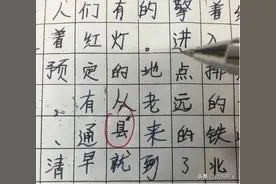 人们有的擎着红
着红灯。进入
预定的地点排
有从老远的
、通县来的铁
清早就到了北